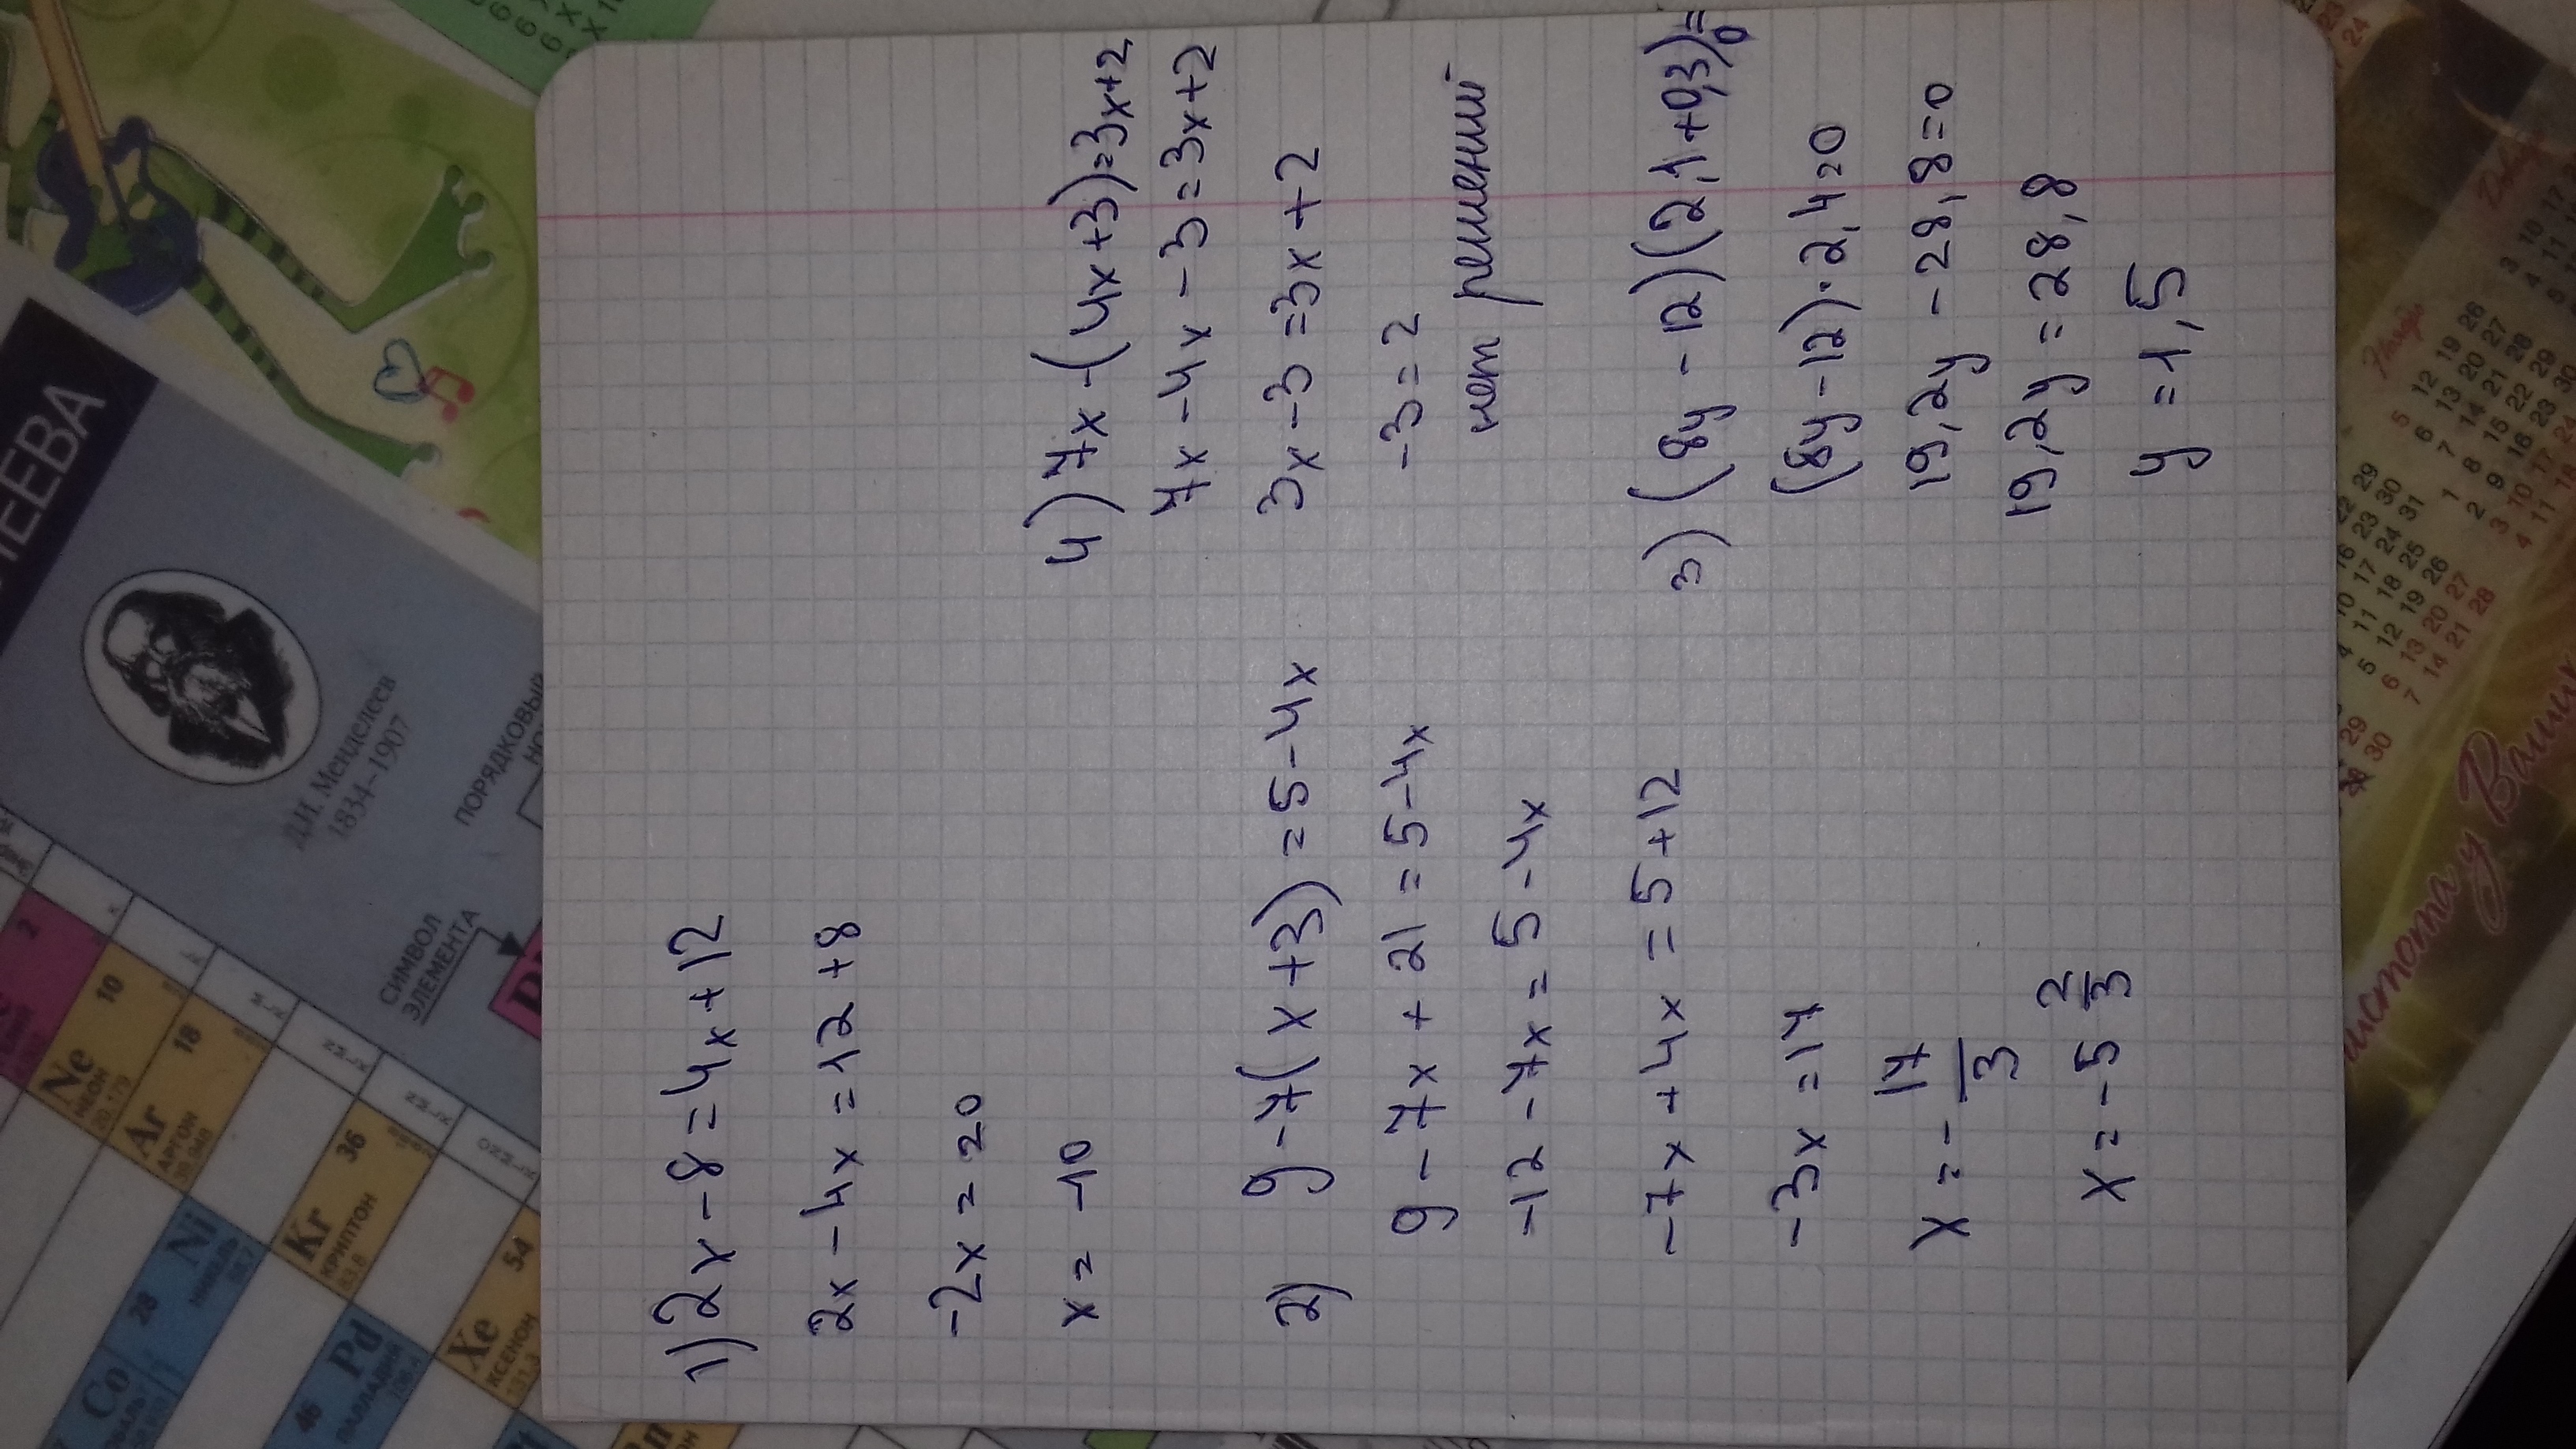 1) 2x-8=4x+12
2x-4x=12+8
-2x=20
x=-10
2) 9-7(x+3)=5-4x
9-7x+21=5-4x
-12-7x=5-4x
-7x+4x=5+12
-3x=17
x=-17/3
x=-5 2/3
4) 7x-(4x+3)=3x+2
7x-4x-3=3x+2
3x-3=3x+2
-3=2
нет решений
3) (8y-12)(2,1+0,3)=0
(8y-12)·2,4=0
19,2y-28,8=0
19,2y=28,8
y=1,5
ЛЕЕВА
Д.И. Менделеев
1834–1907
ПОРЯДКОВЫЙ
СИМВОЛ
ЭЛЕМЕНТА
2
10
Ne
НЕОН
20,179
18
Ar
АРГОН
39,948
36
Kr
КРИПТОН
83,8
54
Xe
КСЕНОН
131,3
28
Ni
НИКЕЛЬ
58,7
Co
46
Pd
ПАЛЛАДИЙ
Январь